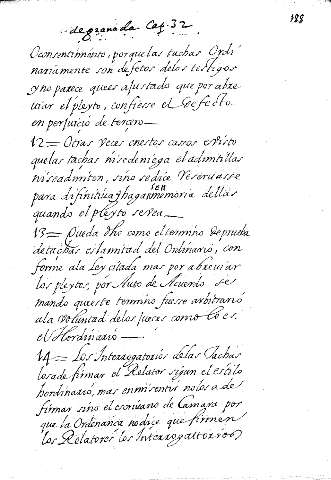 de granada Cap. 32
188
O consentimiento, porque las tachas Ordi
nariamente son defetos delos testigos
y no parece que es ajustado que por abre
uiar el pleyto, confiesse el Defecto
en perjuicio de tercero
12 = Otras veces en estos cassos e visto
que las tachas ni se deniega el admitillas
ni se admiten, sino se dice Reseruasse
para difinitiua y hagan memoria dellas
ten
quando el pleyto se vea
13 = Queda dho como el termino de prueba
de tachas es la mitad del Ordinario, con
forme a la Ley citada mas por abreuiar
los pleytos, por Auto de Acuerdo se
mando que este termino fuesse arbitrario
a la voluntad de los Jueces como lo es
el Hordinario
14 = Los Interrogatorios de las Tachas
los a de firmar el Relator sigun el estilo
hordinario, mas en mi sentir no los a de
firmar sino el escriuano de Camara por
que la Ordenança no dice que firmen
los Relatores los Interrogattorios